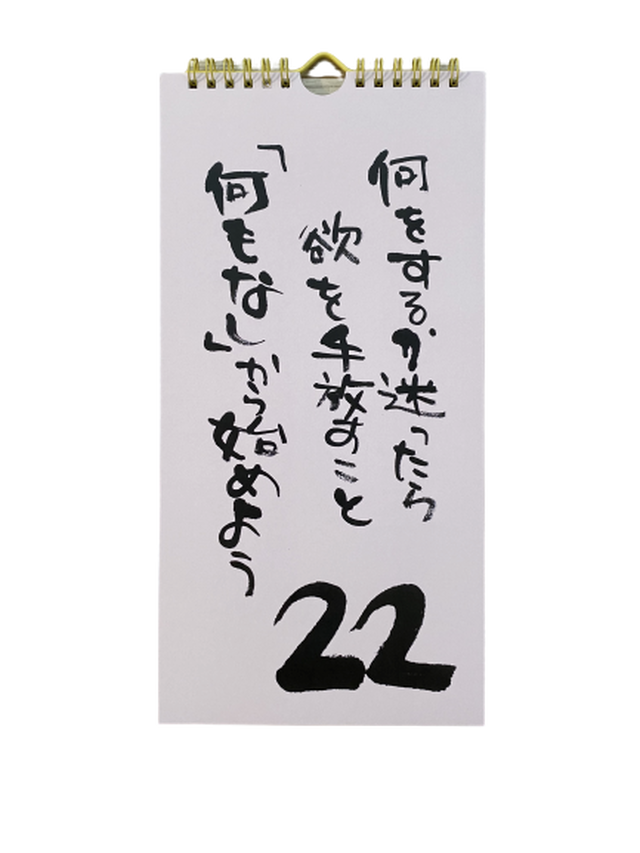 何をするか迷ったら
欲を手放すこと
「何もなし」から始めよう
22